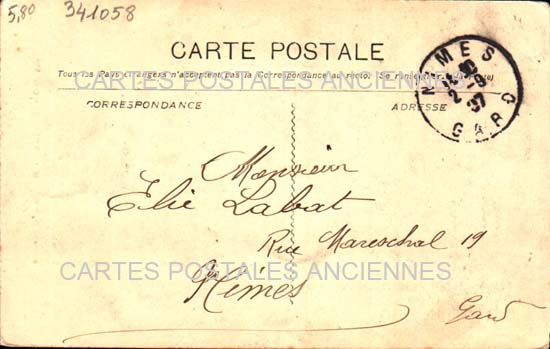 5,80 341058
CARTE POSTALE
Tous les Pays étrangers n'acceptent pas la Correspondance au recto. (Se renseigner à la Poste)
CARTES POSTALES ANCIENNES
CORRESPONDANCE
ADRESSE
NIMES
GARD
Monsieur
Elie Labat
Rue Mareschal 19
CARTES POSTALES ANCIENNES
Nîmes
Gard